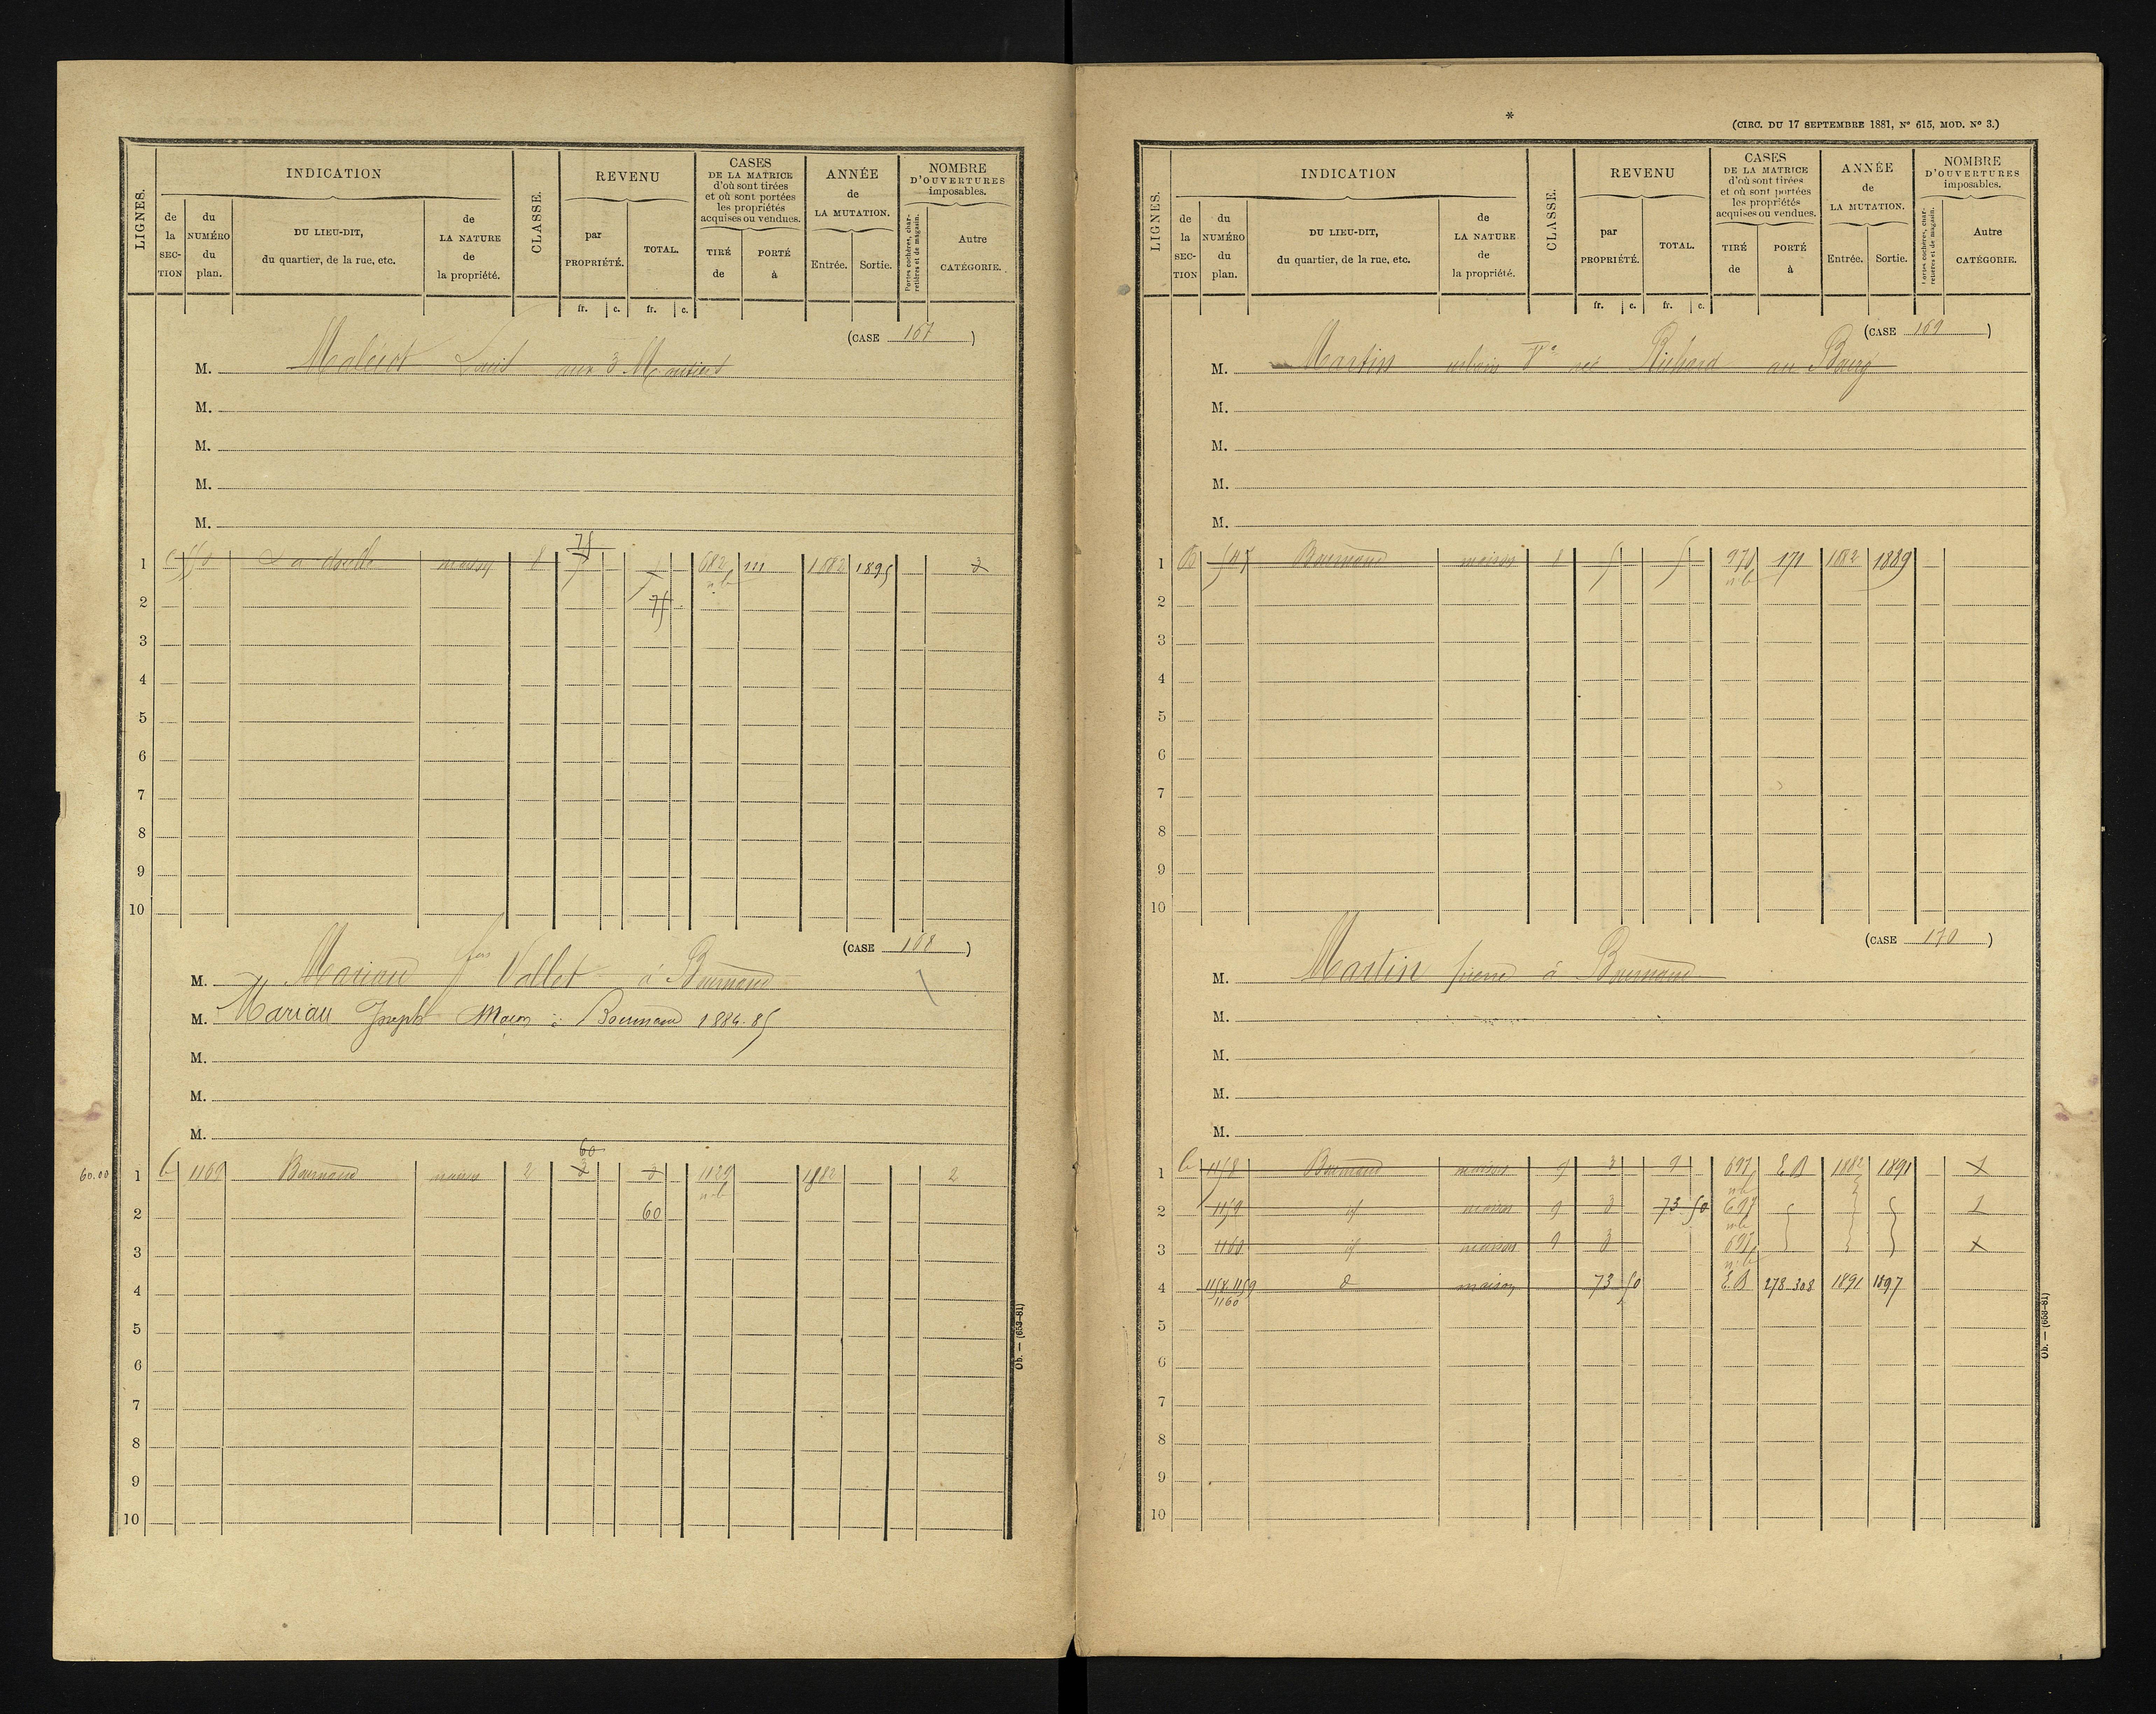 LIGNES.
INDICATION
de la SECTION
du NUMÉRO du plan.
DU LIEU-DIT, du quartier, de la rue, etc.
de LA NATURE de la propriété.
CLASSE.
REVENU
par PROPRIÉTÉ.
TOTAL.
CASES DE LA MATRICE d'où sont tirées et où sont portées les propriétés acquises ou vendues.
TIRÉ de
PORTÉ à
ANNÉE de LA MUTATION.
Entrée. Sortie.
NOMBRE D'OUVERTURES imposables.
Portes cochères, charretières et de magasin.
Autre CATÉGORIE.
fr. c. fr. c.
(CASE 167)
M. Louis aux 3 Moutiers
M.
M.
M.
M.
75
1 maison 8 7 7 682 111 1882 1895 2
n.b
2 75
3
4
5
6
7
8
9
10
(CASE 168)
M. Mariau Vallet à Bournand
M. Mariau Joseph Maçon à Bournand 1884-85
M.
M.
M.
60
60.00 1 C 1169 Bournand maison 2 2 2 1129 1882 2
n.b
2 60
3
4
5
6
7
8
9
10
Ob. — (653-81)
*
(CIRC. DU 17 SEPTEMBRE 1881, Nº 615, MOD. Nº 3.)
LIGNES.
INDICATION
de la SECTION
du NUMÉRO du plan.
DU LIEU-DIT, du quartier, de la rue, etc.
de LA NATURE de la propriété.
CLASSE.
REVENU
par PROPRIÉTÉ.
TOTAL.
CASES DE LA MATRICE d'où sont tirées et où sont portées les propriétés acquises ou vendues.
TIRÉ de
PORTÉ à
ANNÉE de LA MUTATION.
Entrée. Sortie.
NOMBRE D'OUVERTURES imposables.
Portes cochères, charretières et de magasin.
Autre CATÉGORIE.
fr. c. fr. c.
(CASE 169)
M. Martin urbain Vᵉ née Richard au Bourg
M.
M.
M.
M.
1 B 545 Bournand maison 8 5 5 971 171 1882 1889
n.b
2
3
4
5
6
7
8
9
10
(CASE 170)
M. Martin pierre à Bournand
M.
M.
M.
M.
1 C 1158 Bournand maison 9 3 9 697 E B 1882 1891 1
n.b
2 1159 id maison 9 3 73 50 697 1
n.b
3 1160 id maison 9 3 697 1
n.b
4 1158.1159 d maison 73 50 E.B 278-308 1891 1897
1160
5
6
7
8
9
10
Ob. — (653-81)